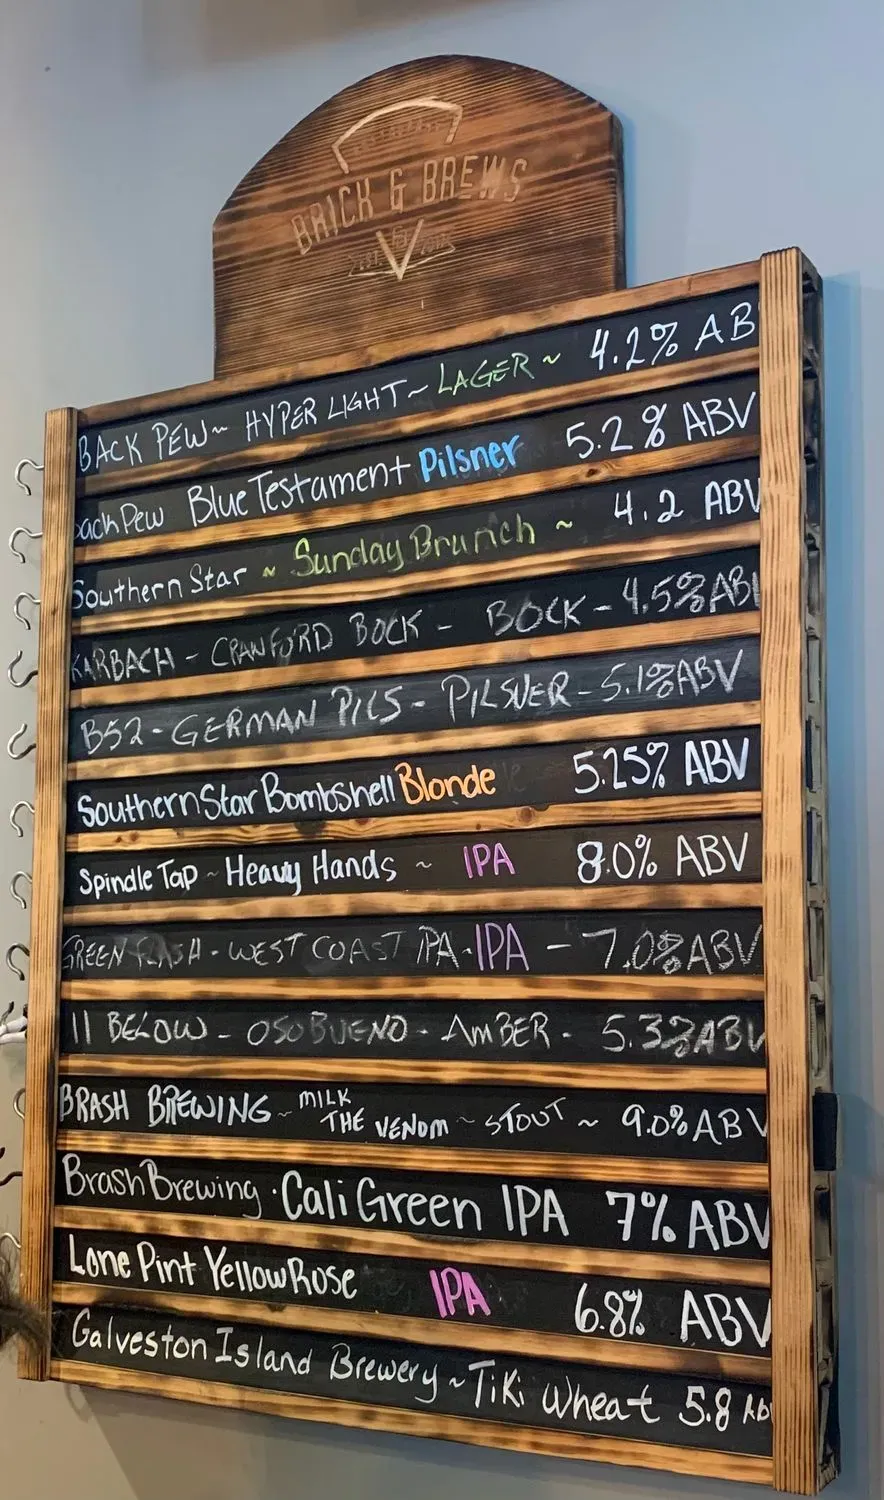 BRICK & BREWS
EST. 2017
BACK PEW ~ HYPER LIGHT ~ LAGER ~ 4.2% AB
ack Pew Blue Testament Pilsner 5.2% ABV
Southern Star ~ Sunday Brunch ~ 4.2 ABV
KARBACH - CRAWFORD BOCK - BOCK - 4.5% ABV
B52 - GERMAN PILS - PILSNER - 5.1% ABV
Southern Star Bombshell Blonde 5.25% ABV
Spindle Tap ~ Heavy Hands ~ IPA 8.0% ABV
GREEN FLASH - WEST COAST IPA - IPA - 7.0% ABV
11 BELOW - OSO BUENO - AMBER - 5.3% ABV
BRASH BREWING ~ MILK THE VENOM ~ STOUT ~ 9.0% ABV
Brash Brewing · Cali Green IPA 7% ABV
Lone Pint Yellow Rose IPA 6.8% ABV
Galveston Island Brewery ~ Tiki Wheat 5.8 Ab